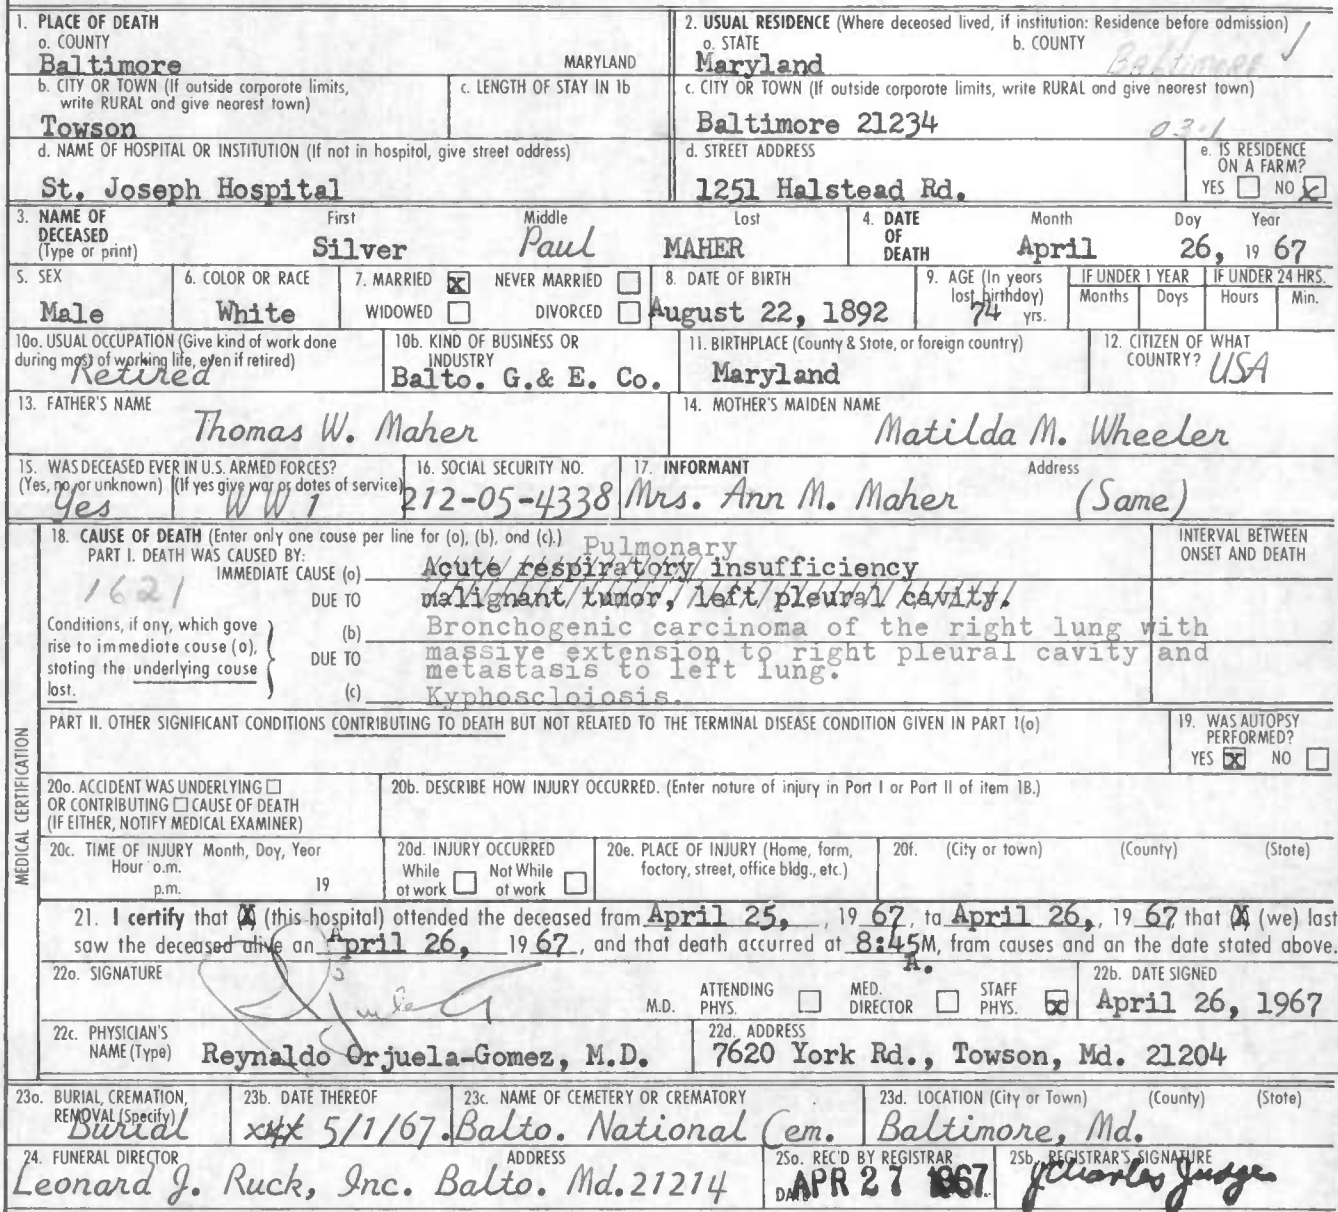 1. PLACE OF DEATH
a. COUNTY
Baltimore MARYLAND
2. USUAL RESIDENCE (Where deceased lived, if institution: Residence before admission)
a. STATE b. COUNTY
Maryland Baltimore ✓
b. CITY OR TOWN (If outside corporate limits, write RURAL and give nearest town)
Towson
c. LENGTH OF STAY IN 1b
c. CITY OR TOWN (If outside corporate limits, write RURAL and give nearest town)
Baltimore 21234 03-1
d. NAME OF HOSPITAL OR INSTITUTION (If not in hospital, give street address)
St. Joseph Hospital
d. STREET ADDRESS
1251 Halstead Rd.
e. IS RESIDENCE ON A FARM?
YES NO x
3. NAME OF DECEASED (Type or print)
First Middle Last
Silver Paul MAHER
4. DATE OF DEATH
Month Day Year
April 26, 19 67
5. SEX
Male
6. COLOR OR RACE
White
7. MARRIED x NEVER MARRIED
WIDOWED DIVORCED
8. DATE OF BIRTH
August 22, 1892
9. AGE (In years last birthday)
74 yrs.
IF UNDER 1 YEAR IF UNDER 24 HRS.
Months Days Hours Min.
10a. USUAL OCCUPATION (Give kind of work done during most of working life, even if retired)
Retired
10b. KIND OF BUSINESS OR INDUSTRY
Balto. G.& E. Co.
11. BIRTHPLACE (County & State, or foreign country)
Maryland
12. CITIZEN OF WHAT COUNTRY?
USA
13. FATHER'S NAME
Thomas W. Maher
14. MOTHER'S MAIDEN NAME
Matilda M. Wheeler
15. WAS DECEASED EVER IN U.S. ARMED FORCES?
(Yes, no, or unknown) (If yes give war or dates of service)
Yes WW 1
16. SOCIAL SECURITY NO.
212-05-4338
17. INFORMANT Address
Mrs. Ann M. Maher (Same)
MEDICAL CERTIFICATION
18. CAUSE OF DEATH (Enter only one cause per line for (a), (b), and (c).)
INTERVAL BETWEEN ONSET AND DEATH
PART I. DEATH WAS CAUSED BY:
Pulmonary
IMMEDIATE CAUSE (a) Acute respiratory insufficiency
1621
DUE TO malignant tumor, left pleural cavity.
Conditions, if any, which gave rise to immediate cause (a), stating the underlying cause last.
(b) Bronchogenic carcinoma of the right lung with
DUE TO massive extension to right pleural cavity and
metastasis to left lung.
(c) Kyphoscloiosis.
PART II. OTHER SIGNIFICANT CONDITIONS CONTRIBUTING TO DEATH BUT NOT RELATED TO THE TERMINAL DISEASE CONDITION GIVEN IN PART I(a)
19. WAS AUTOPSY PERFORMED?
YES x NO
20a. ACCIDENT WAS UNDERLYING
OR CONTRIBUTING CAUSE OF DEATH
(IF EITHER, NOTIFY MEDICAL EXAMINER)
20b. DESCRIBE HOW INJURY OCCURRED. (Enter nature of injury in Part I or Part II of item 18.)
20c. TIME OF INJURY Month, Day, Year
Hour a.m.
p.m. 19
20d. INJURY OCCURRED
While at work Not While at work
20e. PLACE OF INJURY (Home, farm, factory, street, office bldg., etc.)
20f. (City or town) (County) (State)
21. I certify that X (this hospital) attended the deceased from April 25, 19 67, to April 26, 19 67, that X (we) last
saw the deceased alive on April 26, 19 67, and that death occurred at 8:45 M, from causes and on the date stated above.
A.
22a. SIGNATURE
M.D. ATTENDING PHYS. MED. DIRECTOR STAFF PHYS. x
22b. DATE SIGNED
April 26, 1967
22c. PHYSICIAN'S NAME (Type)
Reynaldo Orjuela-Gomez, M.D.
22d. ADDRESS
7620 York Rd., Towson, Md. 21204
23a. BURIAL, CREMATION, REMOVAL (Specify)
Burial
23b. DATE THEREOF
5/1/67.
23c. NAME OF CEMETERY OR CREMATORY
Balto. National Cem.
23d. LOCATION (City or Town) (County) (State)
Baltimore, Md.
24. FUNERAL DIRECTOR ADDRESS
Leonard J. Ruck, Inc. Balto. Md. 21214
25a. REC'D BY REGISTRAR
DATE APR 27 1967
25b. REGISTRAR'S SIGNATURE
J Charles Judge